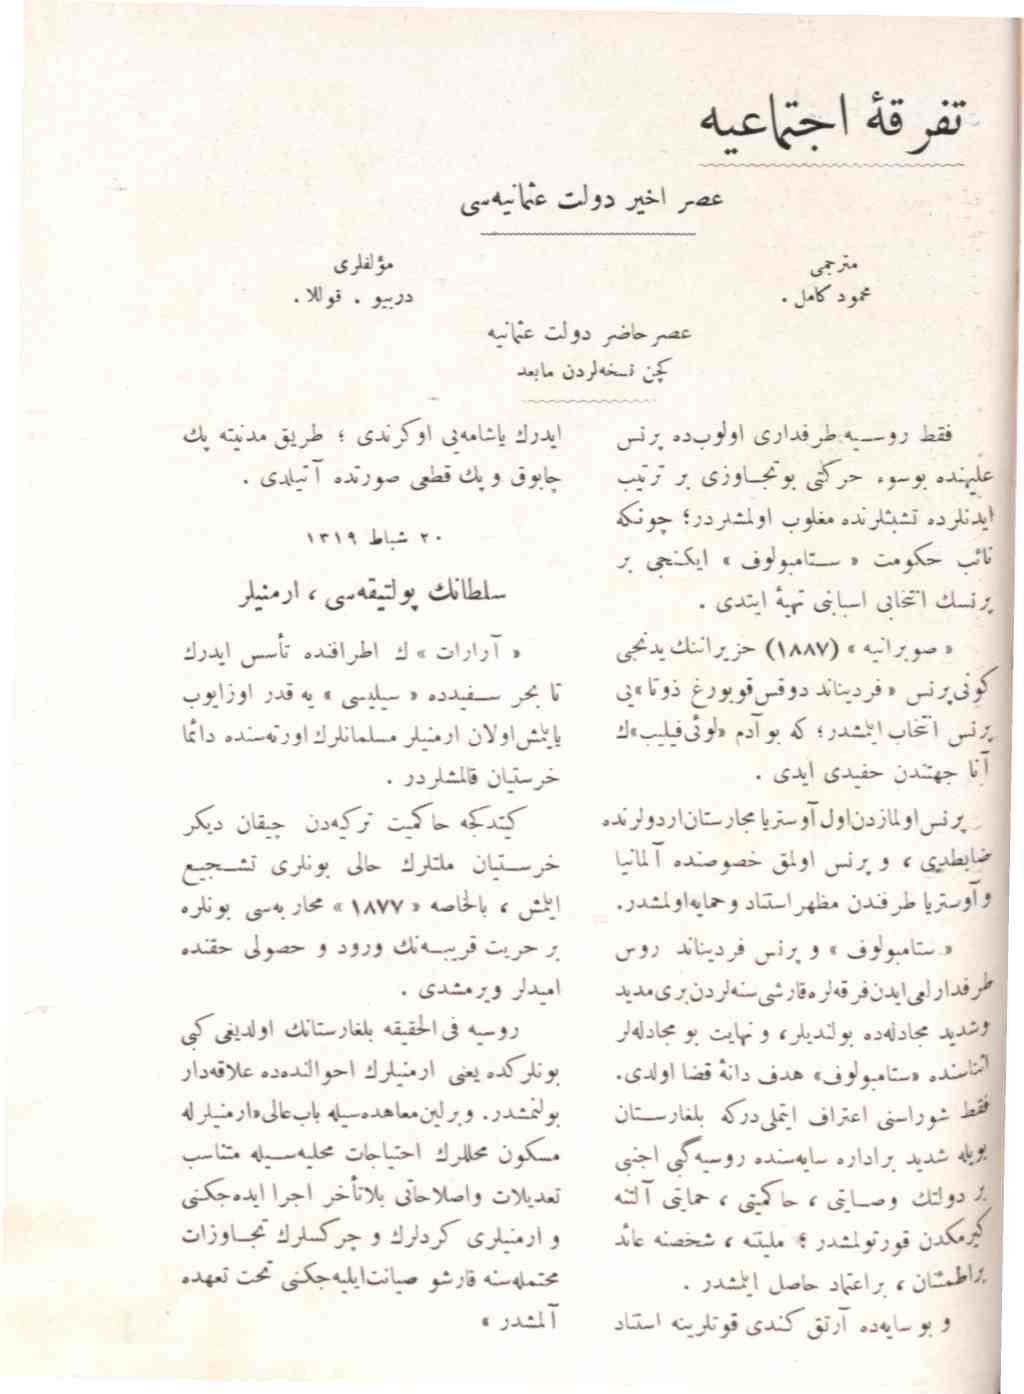 تفرقهٔ اجتماعیه
عصر اخیر دولت عثمانیه‌سی
مترجمی
محمود کامل .
مؤلفلری
دریو . قوللا .
عصر حاضر دولت عثمانیه
کچن نسخه‌لردن مابعد
فقط روسیه طرفداری اولوب‌ده پرنس
علیهنده بوسوء حرکتی بوتجاوزی بر ترتیب
ایدنلرده تشبثلرنده مغلوب اولمشلردر؛ چونکه
نائب حکومت « ستامبولوف » ایکنجی بر
پرنسك انتخابی اسبابنی تهیهٔ ایتدی .
« صوبرانیه » (۱۸۸۷) حزیراننك یدنجی
کونی پرنس « فردیناند دوقس‌قوبورغ ذوتا»یی
پرنس انتخاب ایتمشدر؛ که بو آدم «لوئی‌فیلیپ»ك
آنا جهتندن حفیدی ایدی .
پرنس اولمازدن‌اول آوستریا مجارستان‌اردولرنده
ضابطدی ، و پرنس اولمق خصوصنده آلمانیا
و آوستریا طرفندن مظهر استناد و حمایه‌اولمشدر.
« ستامبولوف » و پرنس فردیناند روس
طرفدارلغی ایدن فرقه‌لره قارشی سنه‌لردن‌بری مدید
وشدید مجادله‌ده بولندیلر، و نهایت بو مجادله‌لر
اثناسنده «ستامبولوف» هدف دانهٔ قضا اولدی.
فقط شوراسنی اعتراف ایتملی‌درکه بلغارستان
بویله شدید براداره سایه‌سنده روسیه‌گبی اجنبی
بر دولتك وصایتی ، حاکمیتی ، حمایتی آلتنه
کیرمکدن قورتولمشدر ؛ ملیتنه ، شخصنه عائد
براطمئنان ، براعتماد حاصل ایتمشدر .
و بو سایه‌ده آرتق کندی قوتلرینه استناد
ایدرك یاشامه‌یی اوکرندی ؛ طریق مدنیته پك
چابوق و پك قطعی صورتده آتیلدی .
۲۰ شباط ۱۳۱۹
سلطانك پولتیقه‌سی ، ارمنیلر
« آرارات » ك اطرافنده تأسس ایدرك
تا بحر سفیدده « سیلیسی » یه قدر اوزایوب
یایلمش‌اولان ارمنیلر مسلمانلرك اورته‌سنده دائما
خرستیان قالمشلردر .
کیتدکجه حاکمیت ترکیه‌دن چیقان دیکر
خرستیان ملتلرك حالی بونلری تشجیع
ایتمش ، بالخاصه « ۱۸۷۷ » محاربه‌سی بونلره
بر حریت قریبه‌نك ورود و حصولی حقنده
امیدلر ویرمشدی .
روسیه فی‌الحقیقه بلغارستانك اولدیغی کبی
بونلرکده یعنی ارمنیلرك احوالنده‌ده علاقه‌دار
بولنمشدر. وبرلین‌معاهده‌سیله باب‌عالی«ارمنیلرله
مسکون محللرك احتیاجات محلیه‌سیله متناسب
تعدیلات واصلاحاتی بلاتأخر اجرا ایده‌جکنی
و ارمنیلری کردلرك و چرکسلرك تجاوزات
محتمله‌سنه قارشو صیانت‌ایلیه‌جکنی تحت تعهده
آلمشدر »